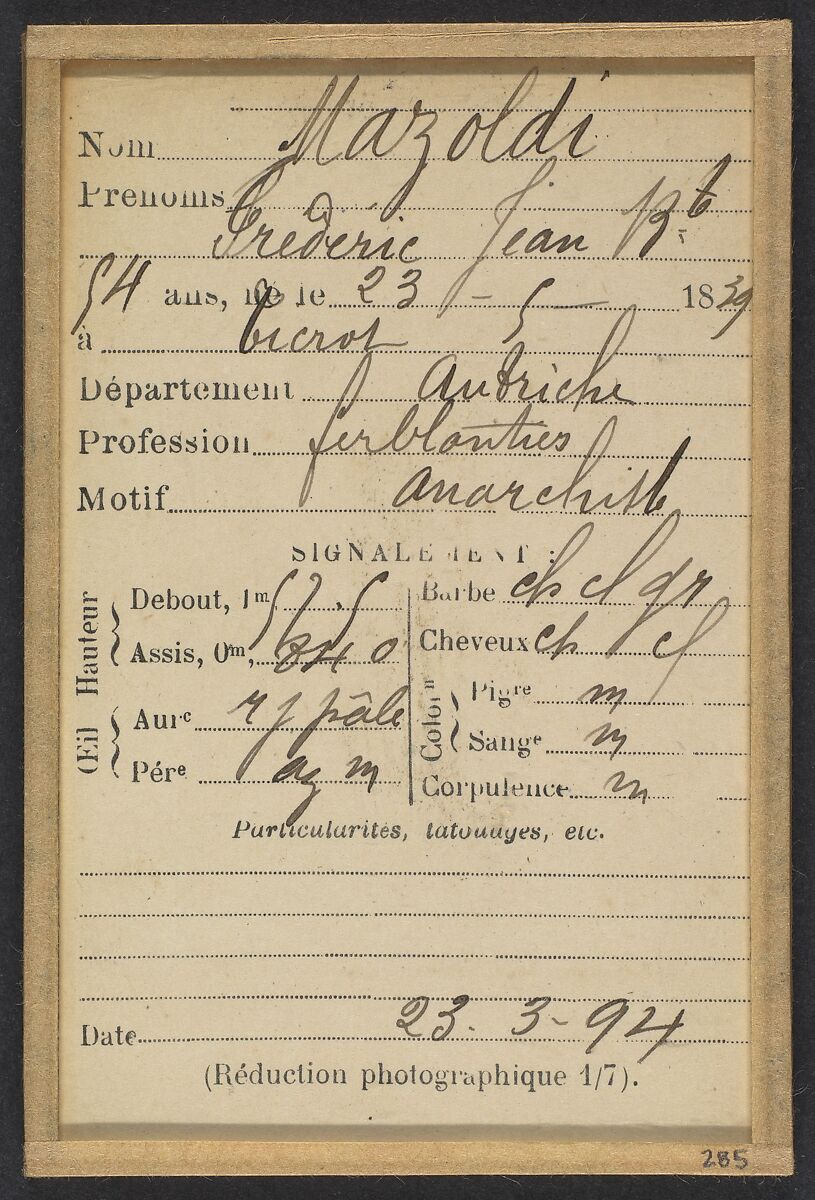 Nom Mazoldi
Prénoms
Frédéric Jean Bte
54 ans, né le 23 - 5 - 1839
à Tierol
Département Autriche
Profession ferblantier
Motif anarchiste
SIGNALEMENT :
Hauteur
Debout, 1m, 57.5
Assis, 0m, 840
Œil
Aurc r j pâle
Pére az m
Barbe ch cl gr
Cheveux ch cl
Coloron
Pigre m
Sange m
Corpulence m
Particularités, tatouages, etc.
Date 23. 3 - 94
(Réduction photographique 1/7).
285